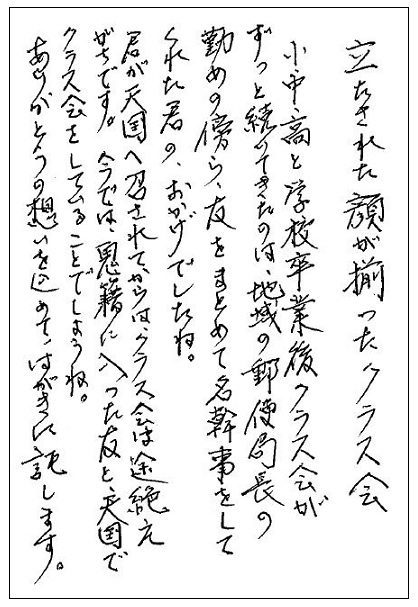 立たされた顔が揃ったクラス会
小中高と学校卒業後クラス会が
ずっと続いてきたのは、地域の郵便局長の
勤めの傍ら、友をまとめて名幹事をして
くれた君の、おかげでしたね。
君が天国へ召されてからは、クラス会は途絶え
がちです。今では、鬼籍に入った友と、天国で
クラス会をしていることでしょうね。
ありがとうの想いを込めて、はがきに託します。